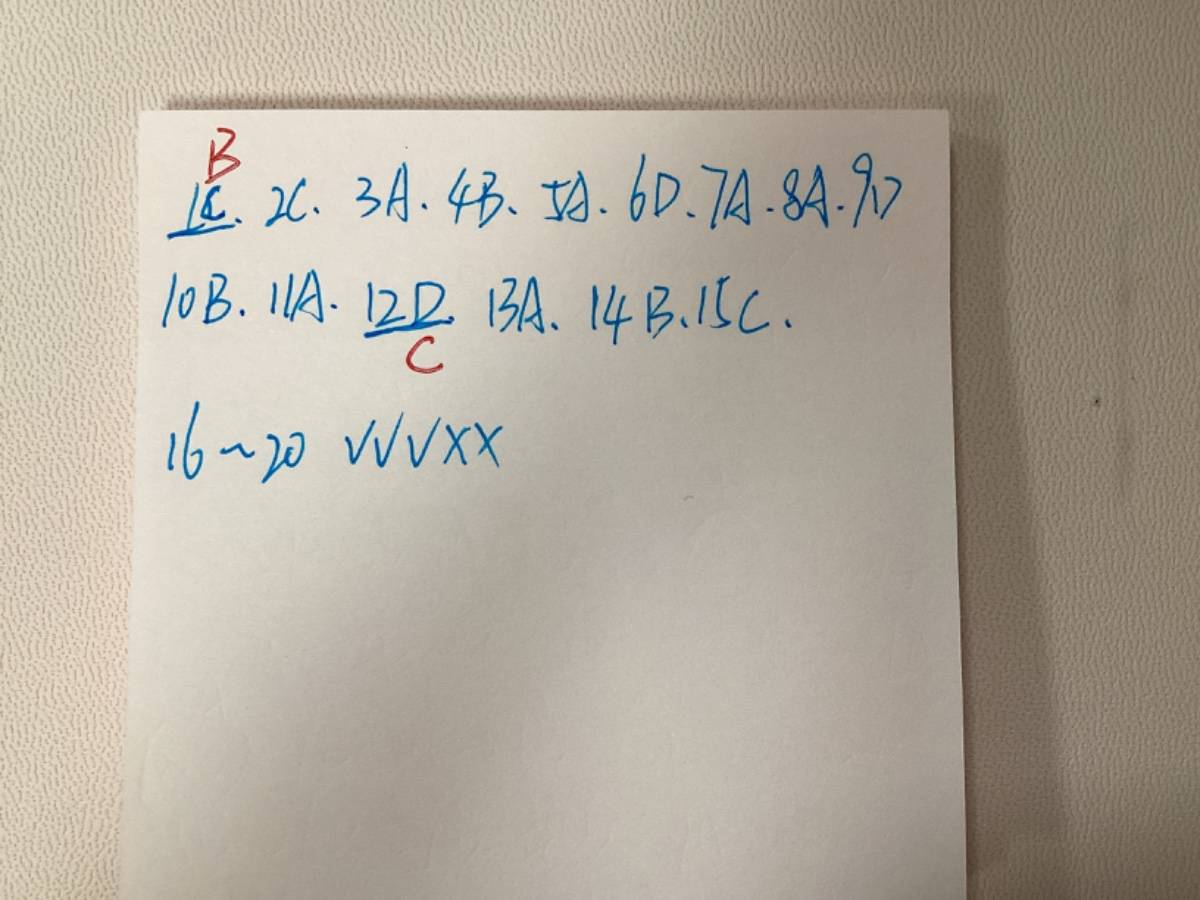 B
1C. 2C. 3A. 4B. 5A. 6D. 7A. 8A. 9D
10B. 11A. 12D. 13A. 14B. 15C.
C
16~20 √√√××